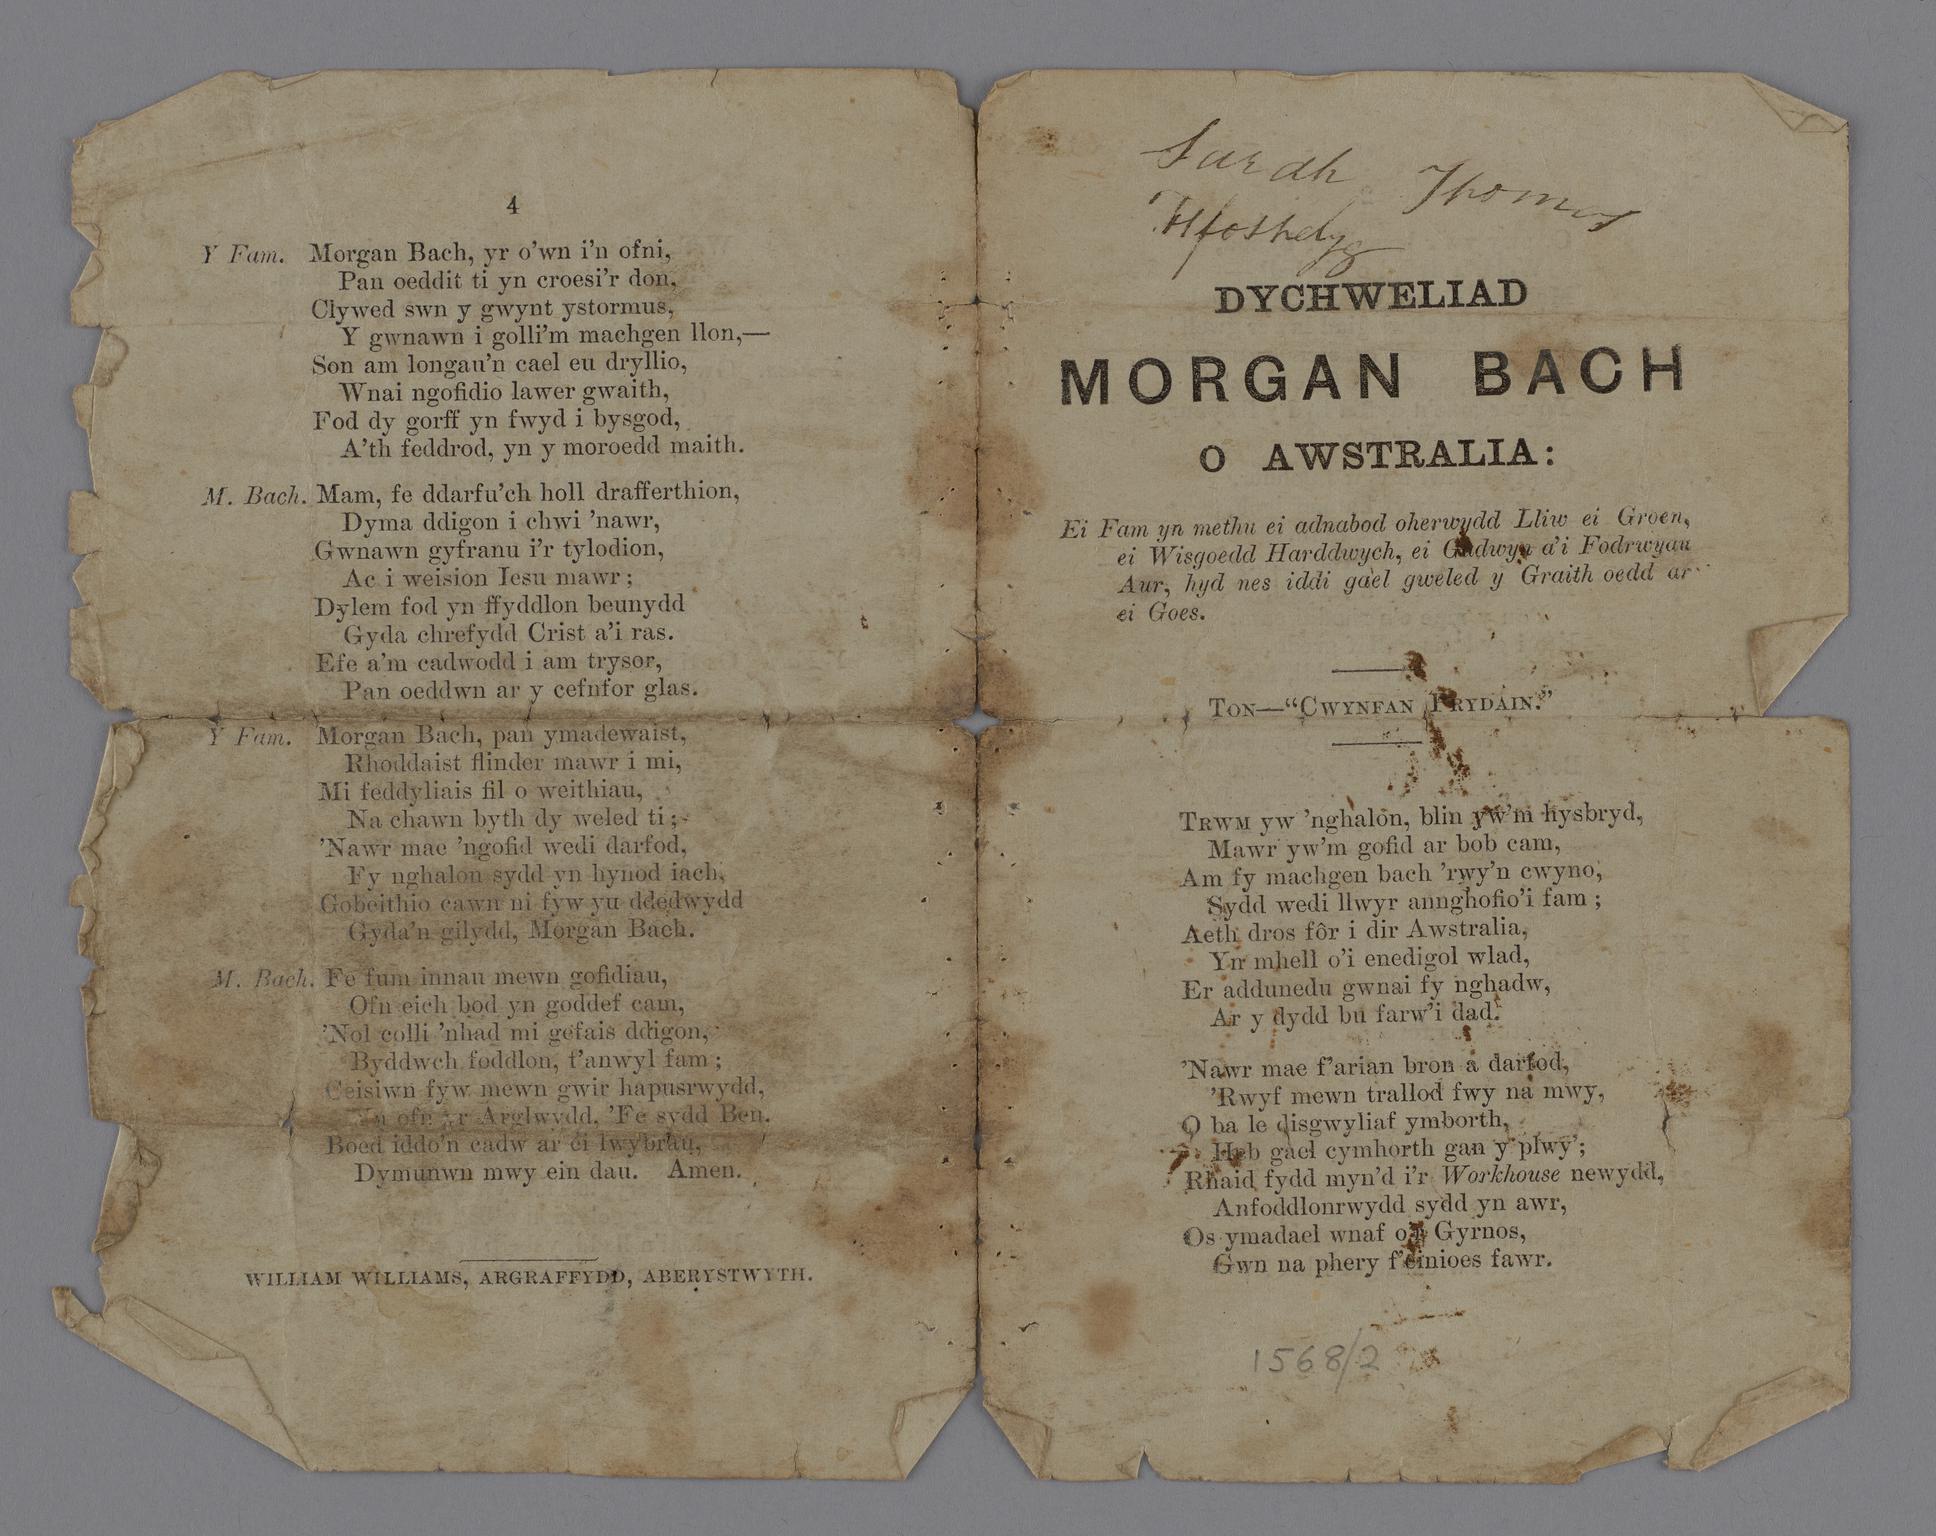 4
Y Fam. Morgan Bach, yr o'wn i'n ofni,
Pan oeddit ti yn croesi'r don,
Clywed swn y gwynt ystormus,
Y gwnawn i golli'm machgen llon,—
Son am longau'n cael eu dryllio,
Wnai ngofidio lawer gwaith,
Fod dy gorff yn fwyd i bysgod,
A'th feddrod, yn y moroedd maith.
M. Bach. Mam, fe ddarfu'ch holl drafferthion,
Dyma ddigon i chwi 'nawr,
Gwnawn gyfranu i'r tylodion,
Ac i weision Iesu mawr;
Dylem fod yn ffyddlon beunydd
Gyda chrefydd Crist a'i ras.
Efe a'm cadwodd i am trysor,
Pan oeddwn ar y cefnfor glas.
Y Fam. Morgan Bach, pan ymadewaist,
Rhoddaist flinder mawr i mi,
Mi feddyliais fil o weithiau,
Na chawn byth dy weled ti;
'Nawr mae 'ngofid wedi darfod,
Fy nghalon sydd yn hynod iach,
Gobeithio cawn ni fyw yn ddedwydd
Gyda'n gilydd, Morgan Bach.
M. Bach. Fe fum innau mewn gofidiau,
Ofn eich bod yn goddef cam,
'Nol colli 'nhad mi gefais ddigon,
Byddwch foddlon, f'anwyl fam;
Ceisiwn fyw mewn gwir hapusrwydd,
Yn ofn yr Arglwydd, 'Fe sydd Ben.
Boed iddo'n cadw ar ei lwybrau,
Dymunwn mwy ein dau. Amen.
WILLIAM WILLIAMS, ARGRAFFYDD, ABERYSTWYTH.
Sarah Thomas
DYCHWELIAD
MORGAN BACH
O AWSTRALIA:
Ei Fam yn methu ei adnabod oherwydd Lliw ei Groen,
ei Wisgoedd Harddwych, ei Gadwyn a'i Fodrwyau
Aur, hyd nes iddi gael gweled y Graith oedd ar
ei Goes.
TON—"CWYNFAN PRYDAIN."
TRWM yw 'nghalon, blin yw'm hysbryd,
Mawr yw'm gofid ar bob cam,
Am fy machgen bach 'rwy'n cwyno,
Sydd wedi llwyr annghofio'i fam;
Aeth dros fôr i dir Awstralia,
Yn mhell o'i enedigol wlad,
Er addunedu gwnai fy nghadw,
Ar y dydd bu farw'i dad.
'Nawr mae f'arian bron a darfod,
'Rwyf mewn trallod fwy na mwy,
O ba le disgwyliaf ymborth,
Heb gael cymhorth gan y plwy';
Rhaid fydd myn'd i'r Workhouse newydd,
Anfoddlonrwydd sydd yn awr,
Os ymadael wnaf o'r Gyrnos,
Gwn na phery f'einioes fawr.
1568/2